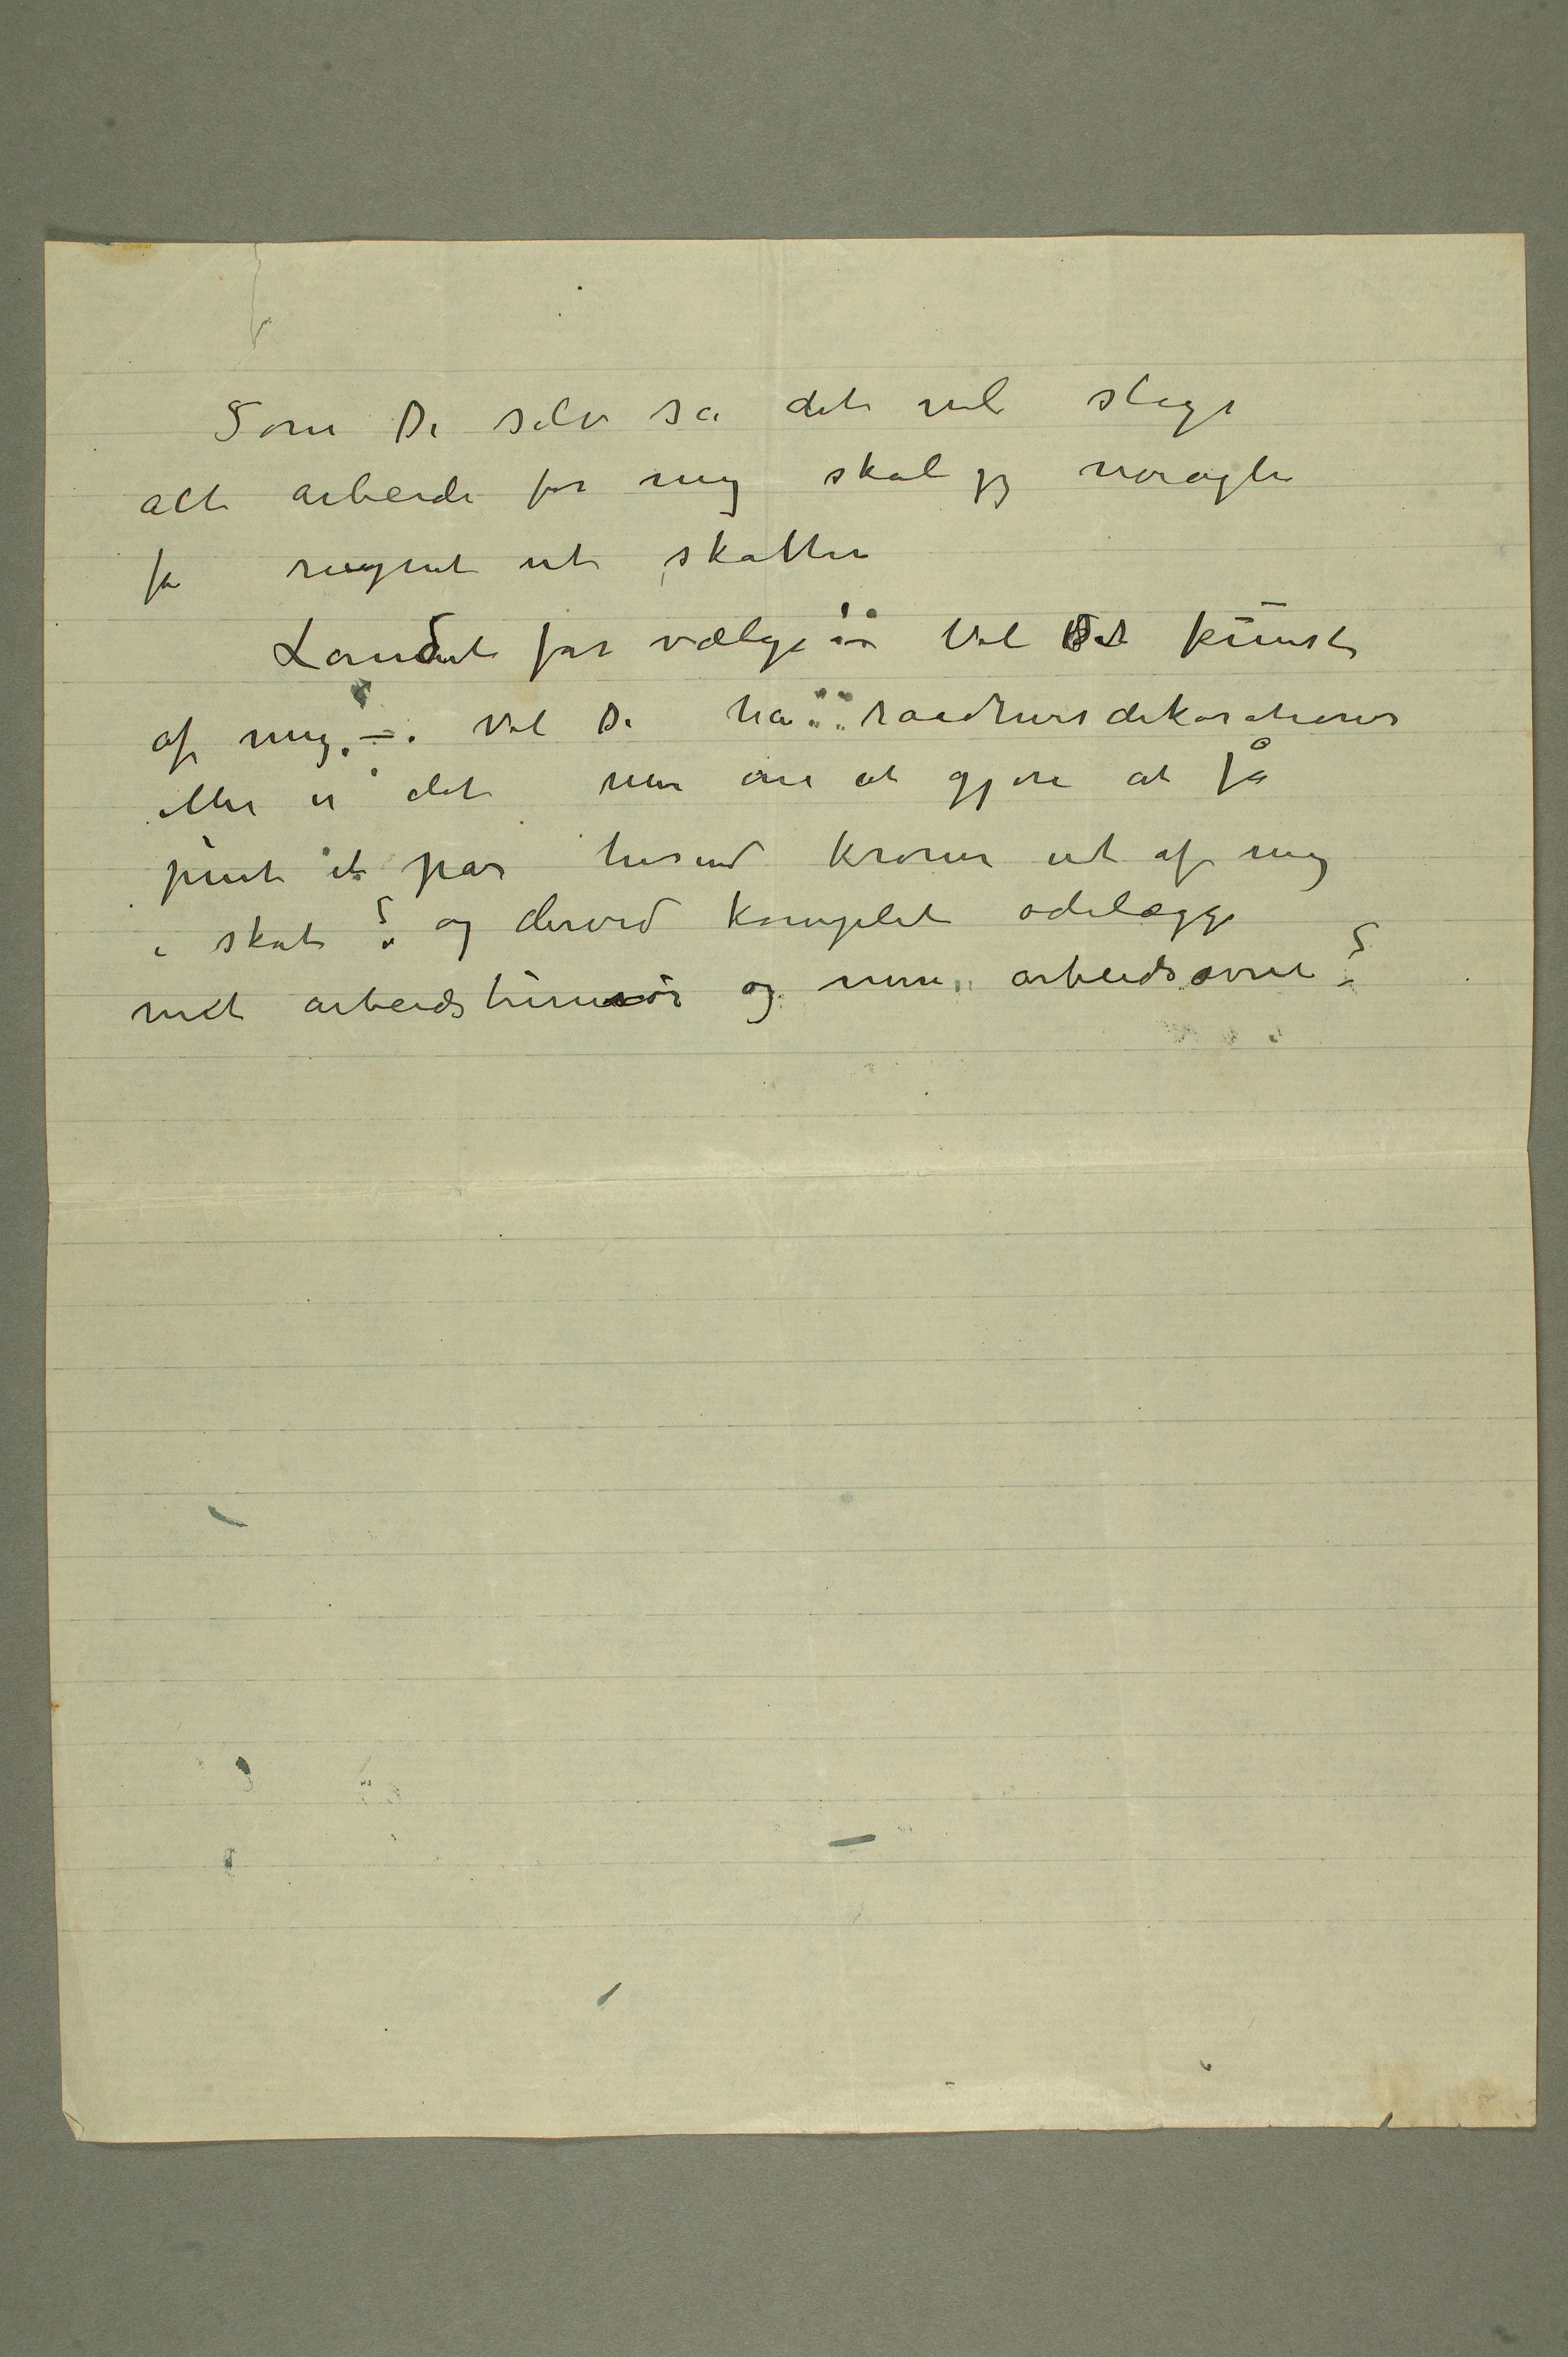 Som De selv sa det vil slage
alt arbeide for mig skal jeg nøiagtig
få regnet ut skatten
Landet får vælge : Vil Det kunst
af mig. – Vil De ha raadhusdekorationer
eller er det um om at gjøre at få
pint et par tusind kroner ut af mig
i skat ? og derved komplet ødelægge
mit arbeidshumør og min arbeidsævne ?